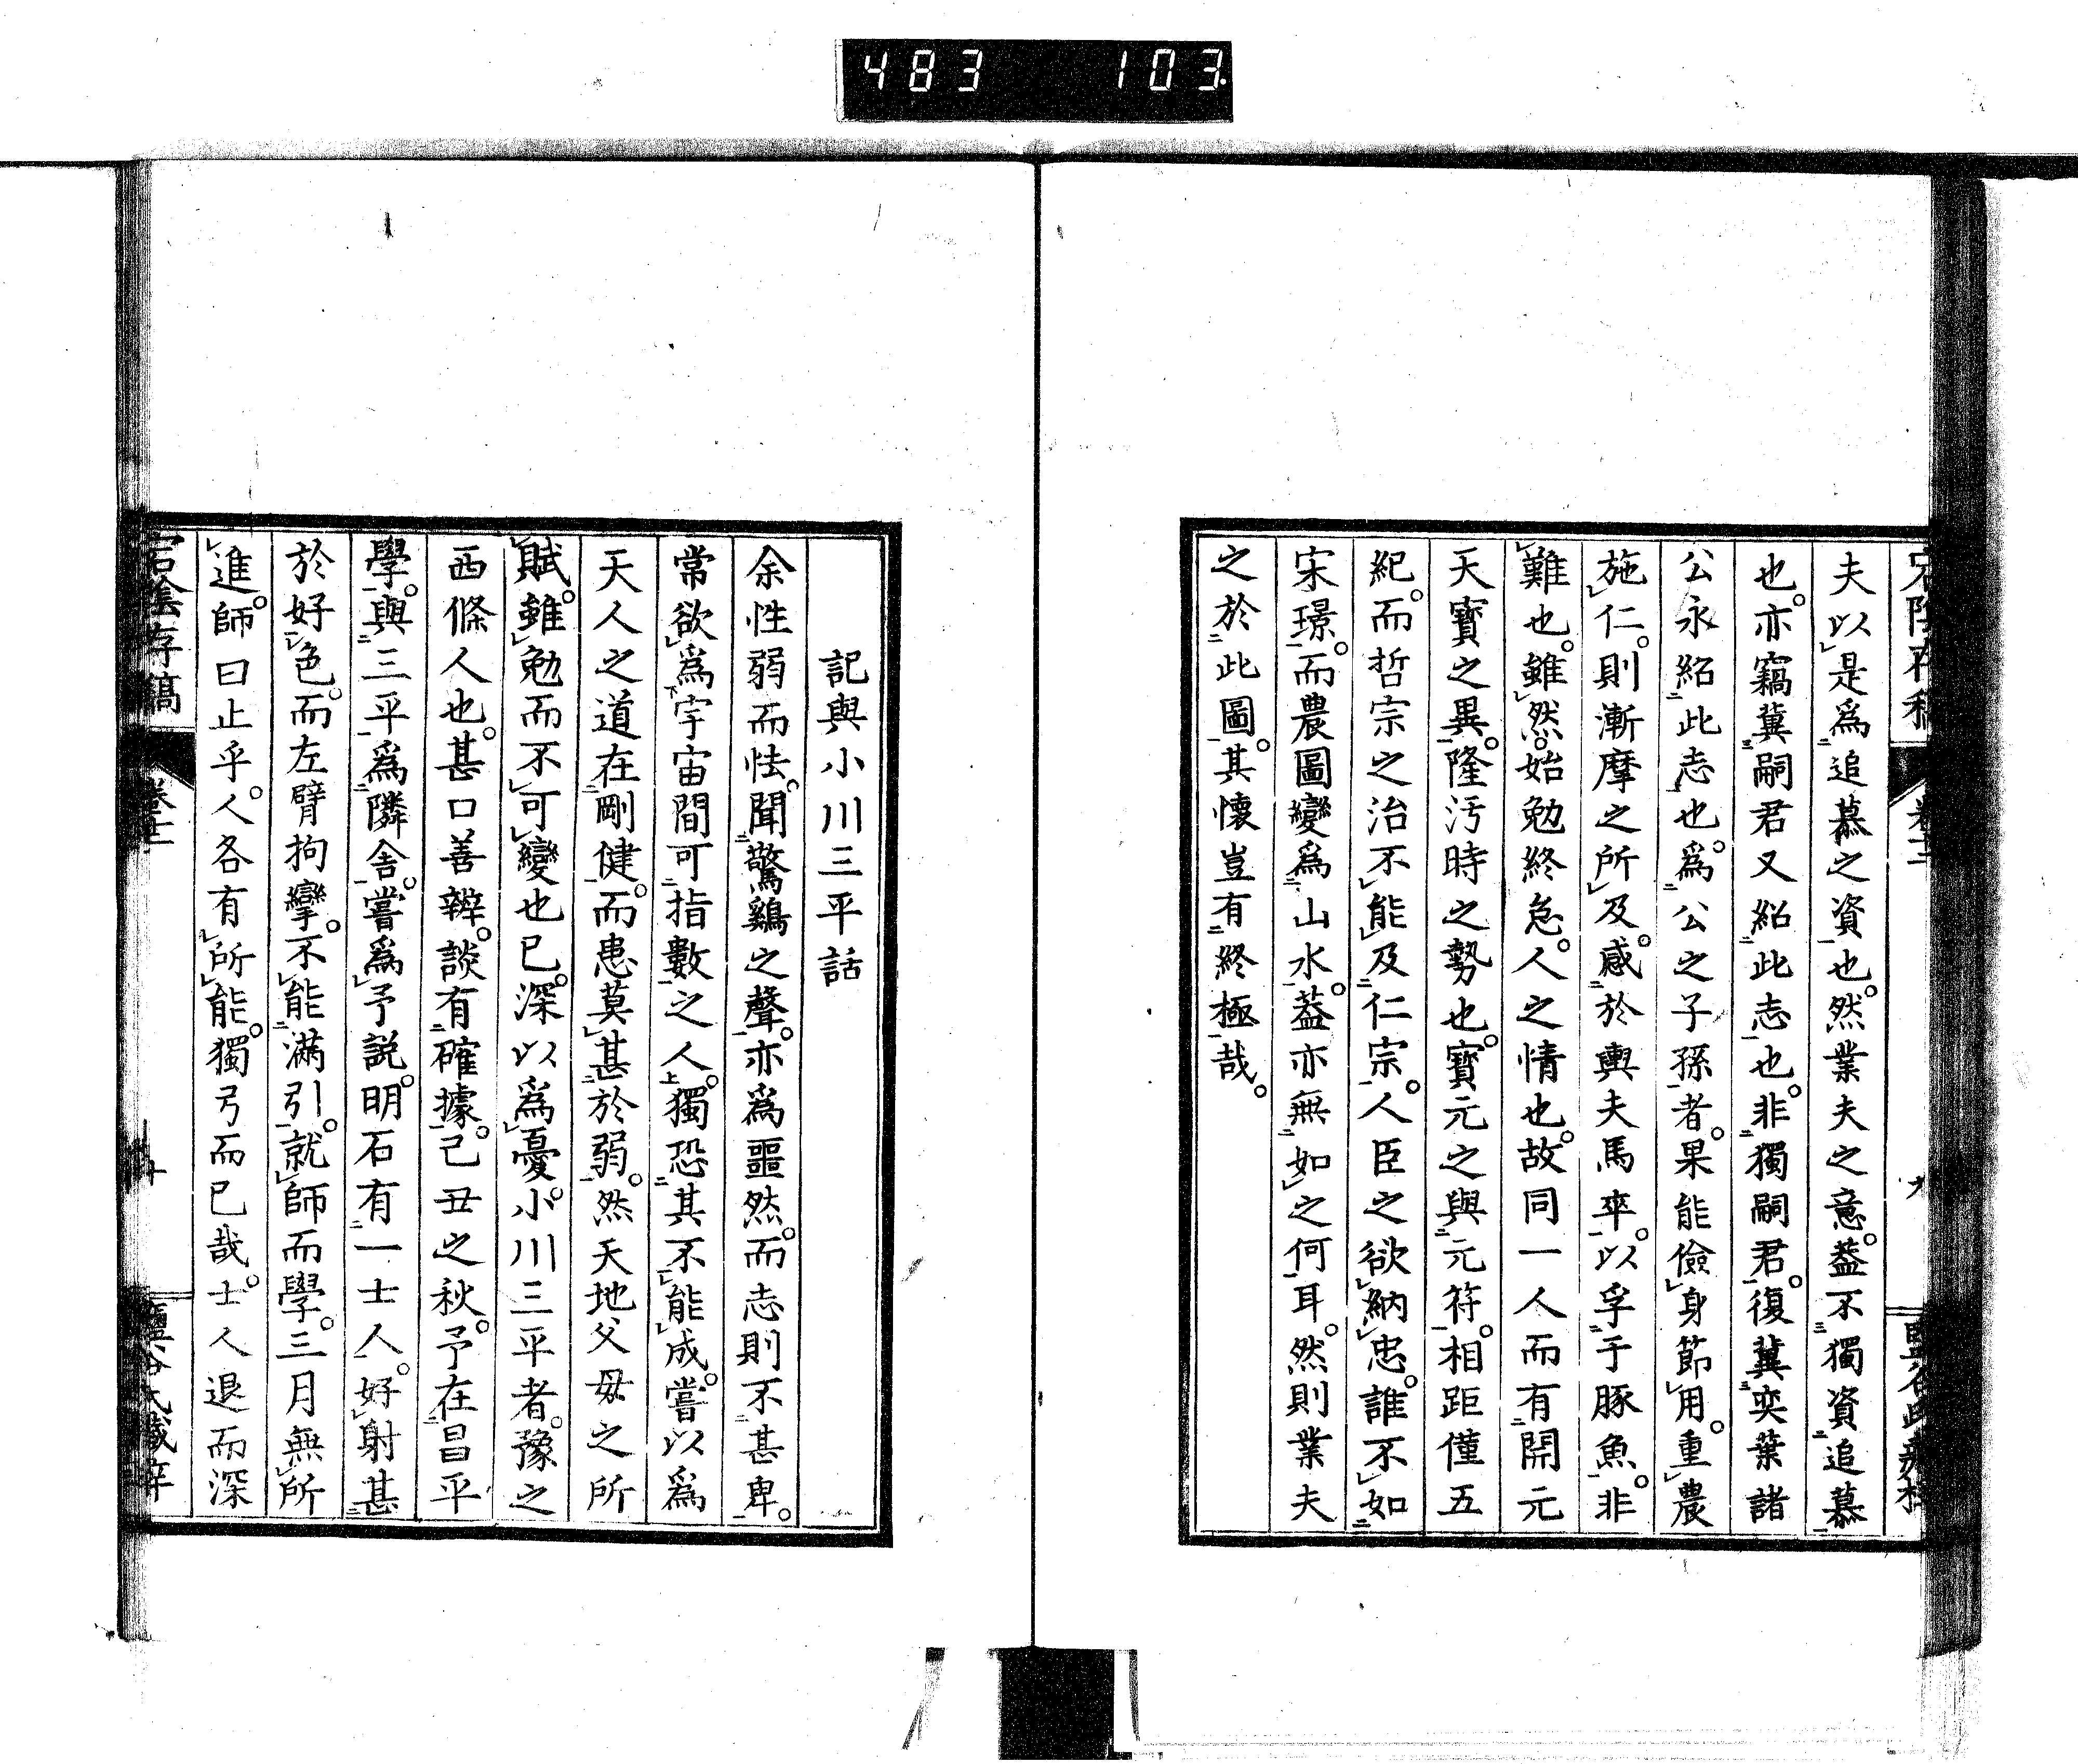 483 103
夫以是爲追慕之資也。然業夫之意。葢不獨資追慕
也。亦竊冀嗣君又紹此志也。非獨嗣君。復冀奕葉諸
公永紹此志也。爲公之子孫者。果能儉身節用。重農
施仁。則漸摩之所及。感於輿夫馬卒。以孚于豚魚。非
難也。雖然。始勉終怠。人之情也。故同一人而有開元
天寶之異。隆汚時之勢也。寶元之與元符。相距僅五
紀。而哲宗之治不能及仁宗。人臣之欲納忠。誰不如
宋璟。而農圖變爲山水。葢亦無如之何耳。然則業夫
之於此圖。其懷豈有終極哉。
記與小川三平話
余性弱而怯。聞驚鷄之聲。亦爲噩然。而志則不甚卑。
常欲爲宇宙間可指數之人。獨恐其不能成。嘗以爲
天人之道在剛健。而患莫甚於弱。然天地父毋之所
賦。雖勉而不可變也已。深以爲憂。小川三平者。豫之
西條人也。甚口善辨。談有確據。己丑之秋。予在昌平
學。與三平爲隣舎。嘗爲予説。明石有一士人。好射甚
於好色。而左臂拘攣。不能滿引。就師而學。三月無所
進。師曰止乎。人各有所能。獨弓而已哉。士人退而深
宕陰存稿 卷十二